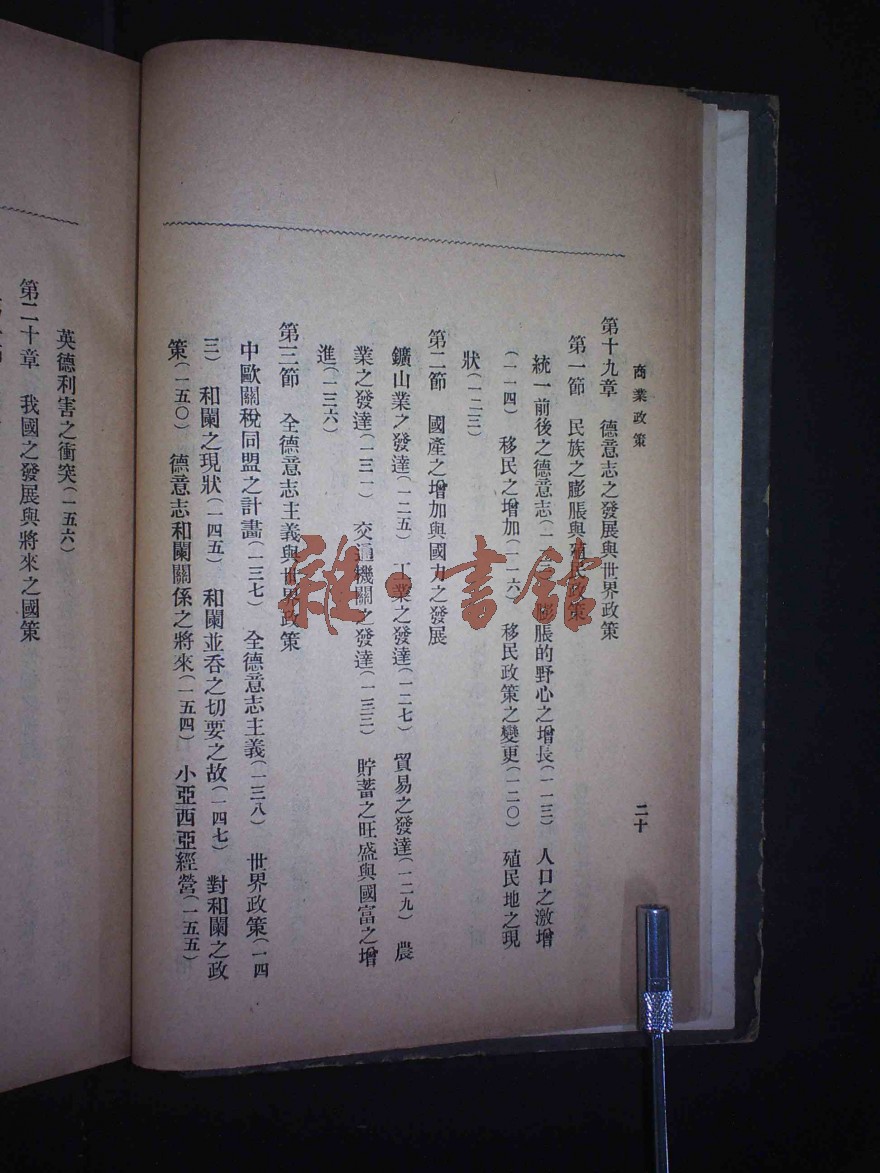 商業政策 二十
第十九章 德意志之發展與世界政策
第一節 民族之膨脹與殖民政策
統一前後之德意志 膨脹的野心之增長(一一三) 人口之激增
(一一四) 移民之增加(一一六) 移民政策之變更(一二〇) 殖民地之現
狀(一二三)
第二節 國產之增加與國力之發展
鑛山業之發達(一二五) 工業之發達(一二七) 貿易之發達(一二九) 農
業之發達(一三一) 交通機關之發達(一三三) 貯蓄之旺盛與國富之增
進(一三六)
第三節 全德意志主義與世界政策
中歐關稅同盟之計畫(一三七) 全德意志主義(一三八) 世界政策(一四
三) 和闌之現狀(一四五) 和闌並吞之切要之故(一四七) 對和闌之政
策(一五〇) 德意志和闌關係之將來(一五四) 小亞西亞經營(一五五)
英德利害之衝突(一五六)
第二十章 我國之發展與將來之國策
雜·書館